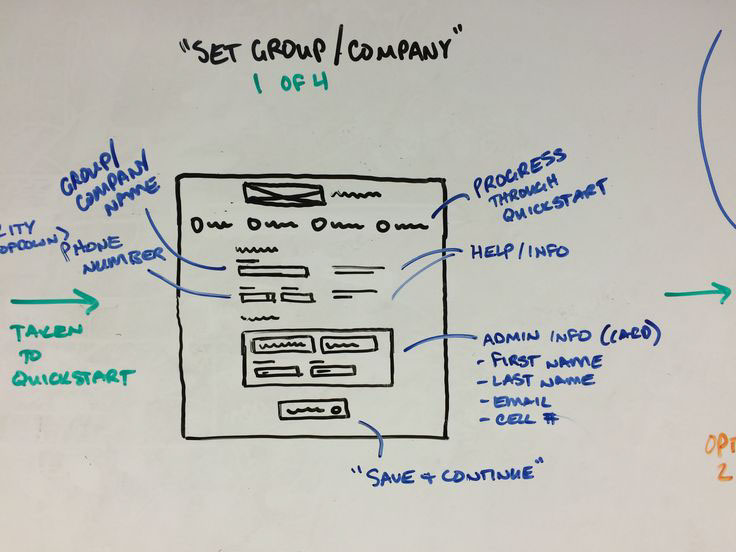 "SET GROUP/COMPANY"
1 OF 4
GROUP/
COMPANY
NAME
PHONE
NUMBER
TAKEN
TO
QUICKSTART
PROGRESS
THROUGH
QUICKSTART
HELP/INFO
ADMIN INFO (CARD)
- FIRST NAME
- LAST NAME
- EMAIL
- CELL #
"SAVE + CONTINUE"
OPT
2